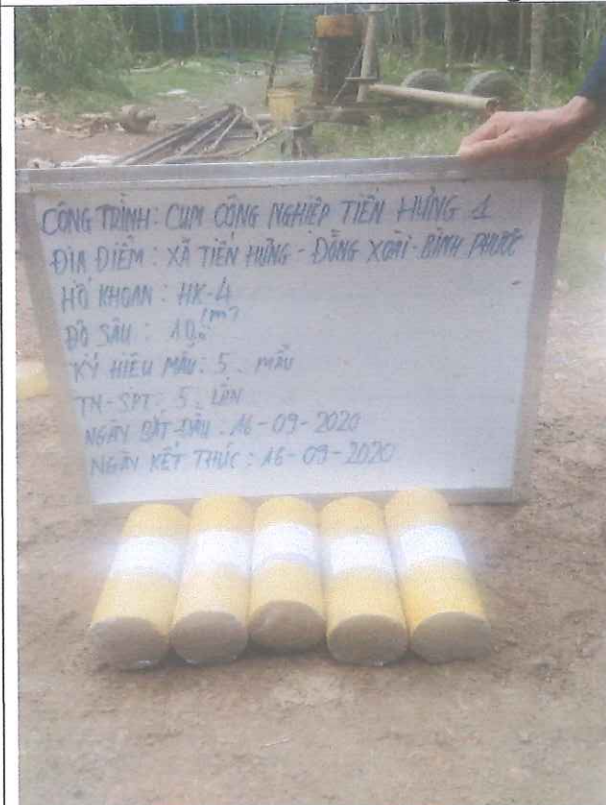 CÔNG TRÌNH: CỤM CÔNG NGHIỆP TIẾN HƯNG 1
ĐỊA ĐIỂM: XÃ TIẾN HƯNG - ĐỒNG XOÀI - BÌNH PHƯỚC
HỐ KHOAN: HK-4
ĐỘ SÂU: 10. (m)
KÝ HIỆU MẪU: 5. MẪU
TN-SPT: 5. LẦN
NGÀY BẮT ĐẦU: 16-09-2020
NGÀY KẾT THÚC: 16-09-2020